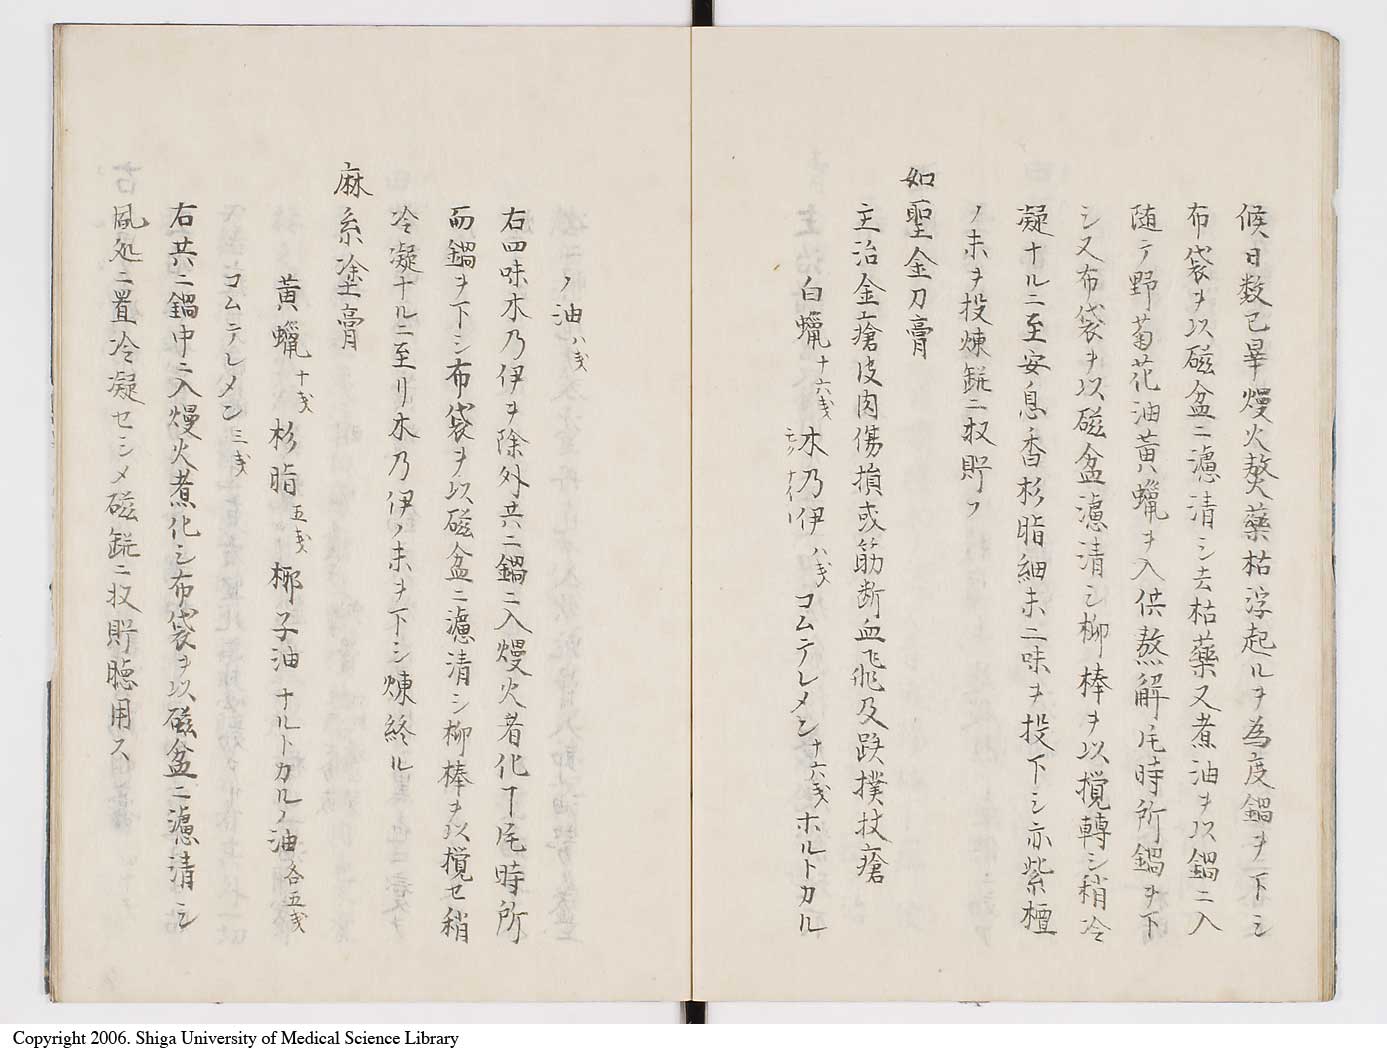 候日数已畢熳火熬藥枯浮起ルヲ為度鍋ヲ下シ
布袋ヲ以磁盆ニ濾清シ去枯藥又煮油ヲ以鍋ニ入
随テ野菊花油黄蠟ヲ入供熬解凡時所鍋ヲ下
シ又布袋ヲ以磁盆濾清シ柳棒ヲ以攪轉シ稍冷
凝ナルニ至安息香杉脂細末二味ヲ投下シ亦紫檀
ノ末ヲ投煉鋐ニ収貯フ
如聖金刀膏
主治金瘡皮肉傷損或筋断血飛及跌撲杖瘡
白蠟十六戔木乃伊八戔コムテレメン十六戔ホルトカル
ノ油八戔
右四味木乃伊ヲ除外共ニ鍋ニ入熳火着化下凡時所
而鍋ヲ下シ布袋ヲ以磁盆ニ濾清シ柳棒ヲ以攪セ稍
冷凝ナルニ至リ木乃伊ノ末ヲ下シ煉終ル
麻糸塗膏
黄蠟十戔 杉脂五戔 椰子油 ホルトカルノ油各五戔
コムテレメン三戔
右共ニ鍋中ニ入熳火煮化シ布袋ヲ以磁盆ニ濾清シ
風処ニ置冷凝セシメ磁鋐ニ収貯聴用ス
Copyright 2006. Shiga University of Medical Science Library